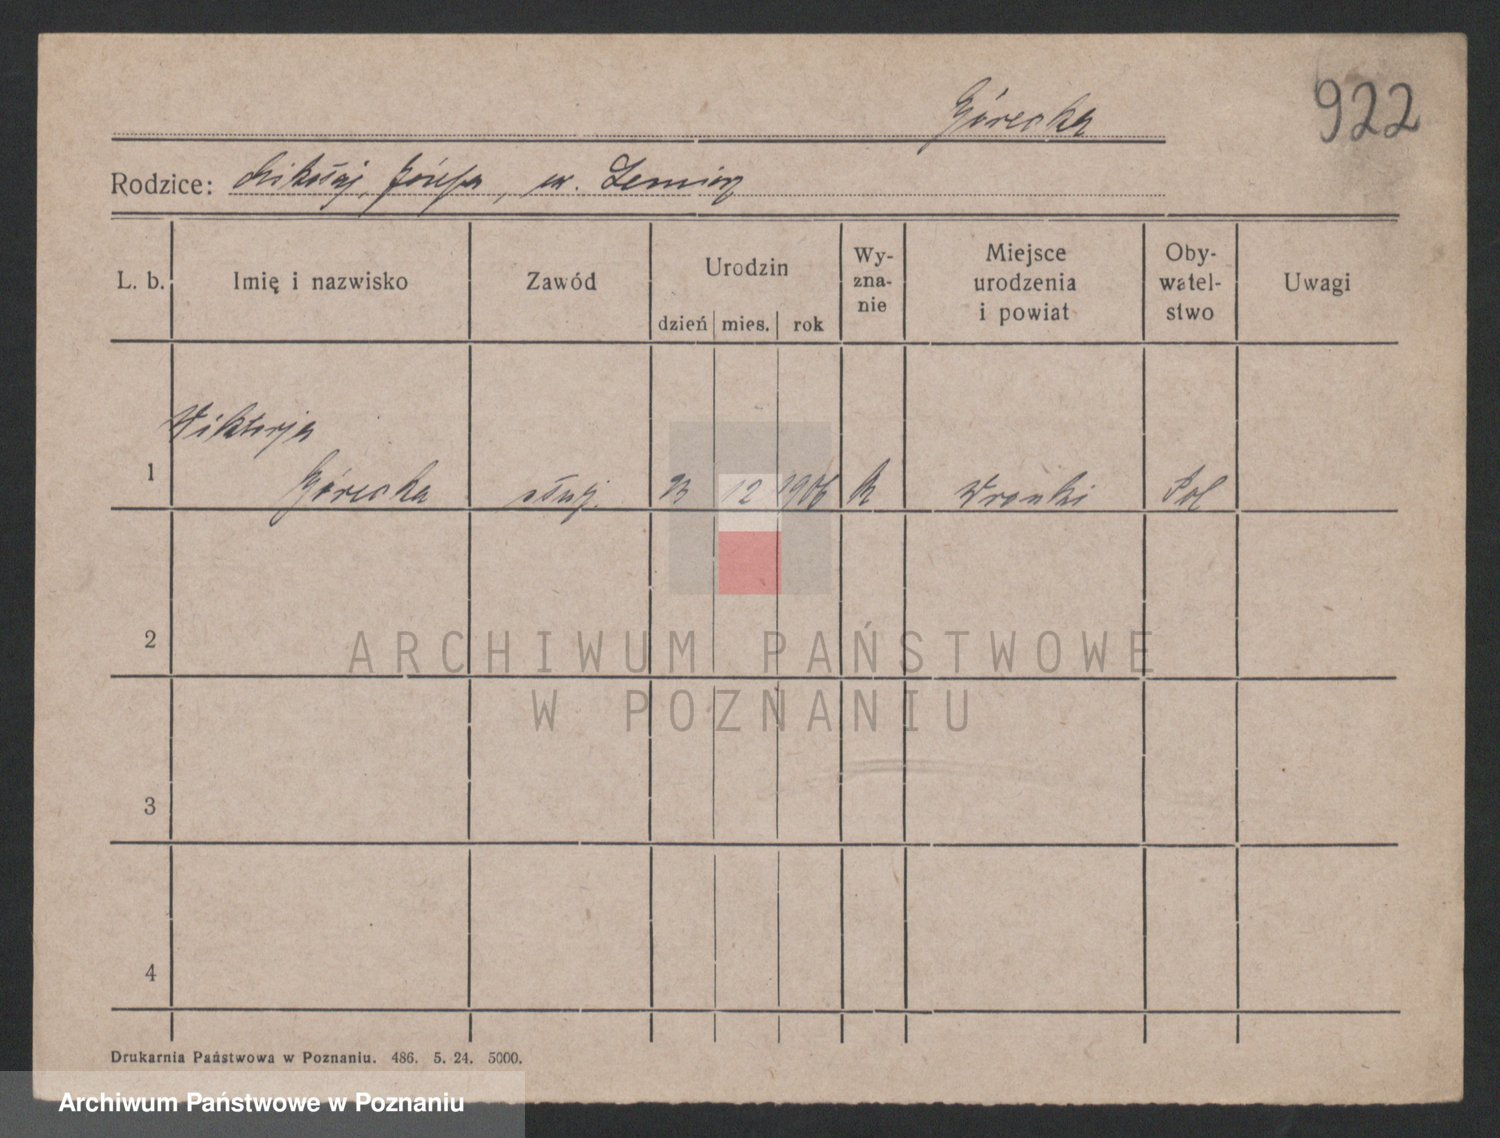 922
Górecka
Rodzice: Mikołaj, Józefa, ur.
L. b. Imię i nazwisko Zawód Urodzin dzień mies. rok Wy-zna-nie Miejsce urodzenia i powiat Oby-watel-stwo Uwagi
Wiktorja
1 Górecka służ. 23 12 1906 k Wronki Pol
2
ARCHIWUM PAŃSTWOWE
W POZNANIU
3
4
Drukarnia Państwowa w Poznaniu. 486. 5. 24. 5000.
Archiwum Państwowe w Poznaniu